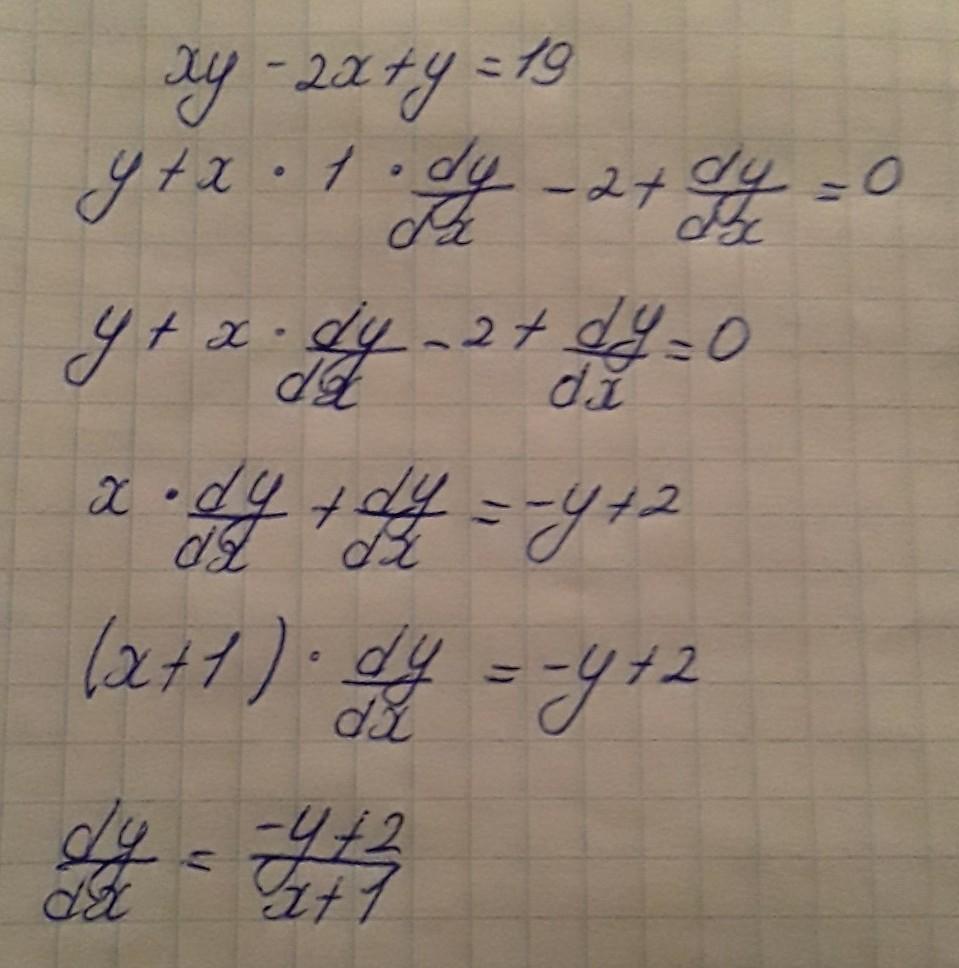 xy - 2x + y = 19
y + x · 1 · dy/dx - 2 + dy/dx = 0
y + x · dy/dx - 2 + dy/dx = 0
x · dy/dx + dy/dx = -y + 2
(x + 1) · dy/dx = -y + 2
dy/dx = (-y + 2)/(x + 1)